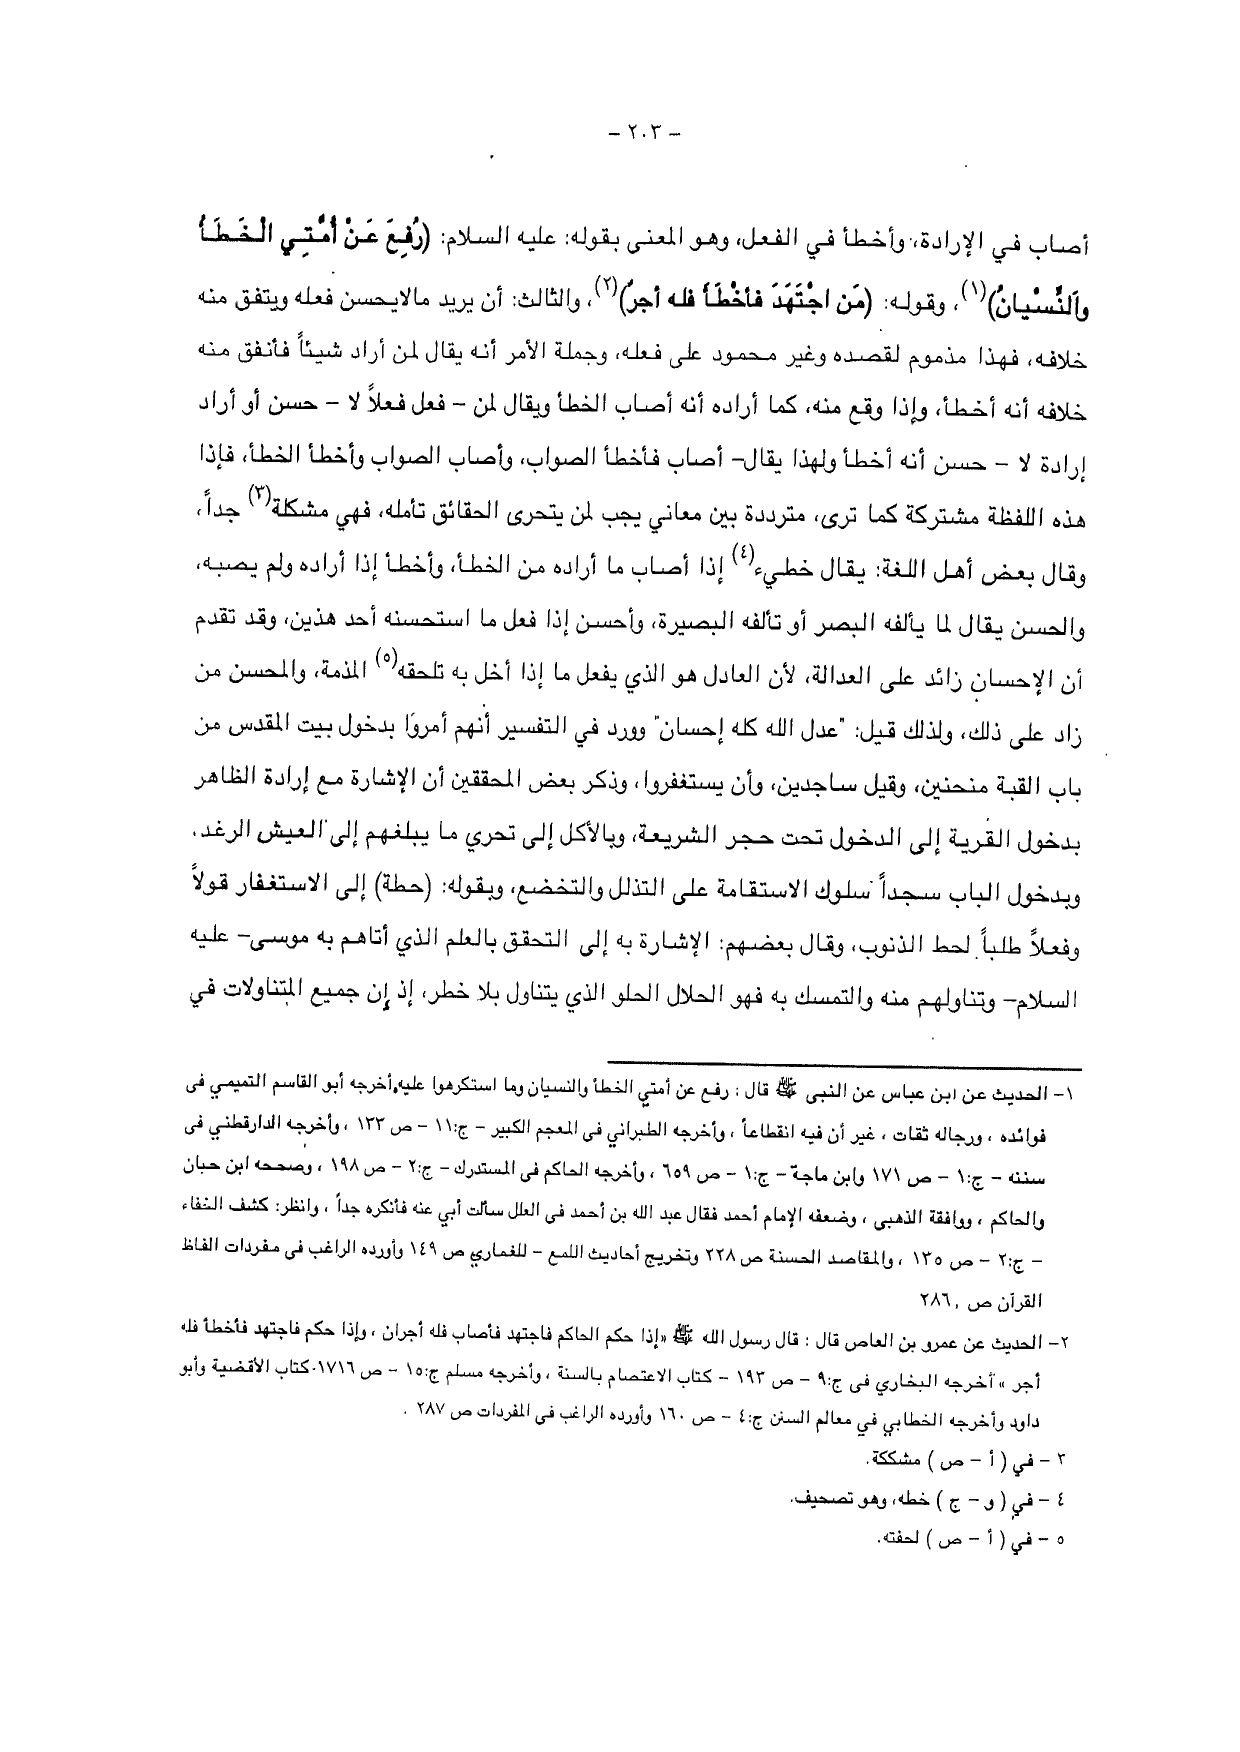 – ٢٠٣ –
أصاب في الإرادة، وأخطأ في الفعل، وهو المعنى بقوله: عليه السلام: (رُفِعَ عَنْ أمَّتِي الخَطَأ
وَالنُّسْيَانُ)(١)، وقوله: (مَن اجْتَهَدَ فأخْطَأ فله أجرٌ)(٢)، والثالث: أن يريد مالايحسن فعله ويتفق منه
خلافه، فهذا مذموم لقصده وغير محمود على فعله، وجملة الأمر أنه يقال لمن أراد شيئاً فأنفق منه
خلافه أنه أخطأ، وإذا وقع منه، كما أراده أنه أصاب الخطأ ويقال لمن – فعل فعلاً لا – حسن أو أراد
إرادة لا – حسن أنه أخطأ ولهذا يقال– أصاب فأخطأ الصواب، وأصاب الصواب وأخطأ الخطأ، فإذا
هذه اللفظة مشتركة كما ترى، مترددة بين معاني يجب لمن يتحرى الحقائق تأمله، فهي مشكلة(٣) جداً،
وقال بعض أهل اللغة: يقال خطيء(٤) إذا أصاب ما أراده من الخطأ، وأخطأ إذا أراده ولم يصبه،
والحسن يقال لما يألفه البصر أو تألفه البصيرة، وأحسن إذا فعل ما استحسنه أحد هذين، وقد تقدم
أن الإحسان زائد على العدالة، لأن العادل هو الذي يفعل ما إذا أخل به تلحقه(٥) المذمة، والمحسن من
زاد على ذلك، ولذلك قيل: "عدل الله كله إحسان" وورد في التفسير أنهم أمروا بدخول بيت المقدس من
باب القبة منحنين، وقيل ساجدين، وأن يستغفروا، وذكر بعض المحققين أن الإشارة مع إرادة الظاهر
بدخول القرية إلى الدخول تحت حجر الشريعة، وبالأكل إلى تحري ما يبلغهم إلى العيش الرغد.
وبدخول الباب سجداً سلوك الاستقامة على التذلل والتخضع، وبقوله: (حطة) إلى الاستغفار قولاً
وفعلاً طلباً لحط الذنوب، وقال بعضهم: الإشارة به إلى التحقق بالعلم الذي أتاهم به موسى– عليه
السلام– وتناولهم منه والتمسك به فهو الحلال الحلو الذي يتناول بلا خطر، إذ إن جميع المتناولات في
١– الحديث عن ابن عباس عن النبي ﷺ قال : رفع عن أمتي الخطأ والنسيان وما استكرهوا عليه، أخرجه أبو القاسم التميمي فى
فوائده ، ورجاله ثقات ، غير أن فيه انقطاعاً ، وأخرجه الطبراني فى المعجم الكبير – ج:١١ – ص ١٣٣ ، وأخرجه الدارقطني فى
سننه – ج:١ – ص ١٧١ وابن ماجة– ج:١ – ص ٦٥٩ ، وأخرجه الحاكم فى المستدرك – ج:٢ – ص ١٩٨ ، وصححه ابن حبان
والحاكم ، ووافقة الذهبي ، وضعفه الإمام أحمد فقال عبد الله بن أحمد فى العلل سألت أبي عنه فأنكره جداً ، وانظر: كشف الخفاء
– ج:٢ – ص ١٣٥ ، والمقاصد الحسنة ص ٢٢٨ وتخريج أحاديث اللمع – للغماري ص ١٤٩ وأورده الراغب فى مفردات الفاظ
القرآن ص ٢٨٦.
٢– الحديث عن عمرو بن العاص قال : قال رسول الله ﷺ «إذا حكم الحاكم فاجتهد فأصاب فله أجران ، وإذا حكم فاجتهد فأخطأ فله
أجر » أخرجه البخاري فى ج:٩ – ص ١٩٣ – كتاب الاعتصام بالسنة ، وأخرجه مسلم ج:١٥ – ص ١٧١٦-كتاب الأقضية وأبو
داود وأخرجه الخطابي في معالم السنن ج:٤ – ص ١٦٠ وأورده الراغب فى المفردات ص ٢٨٧ .
٣ – في ( أ – ص ) مشككة.
٤ – في ( و – ج ) خطه، وهو تصحيف.
٥ – في ( أ – ص ) لحفته.